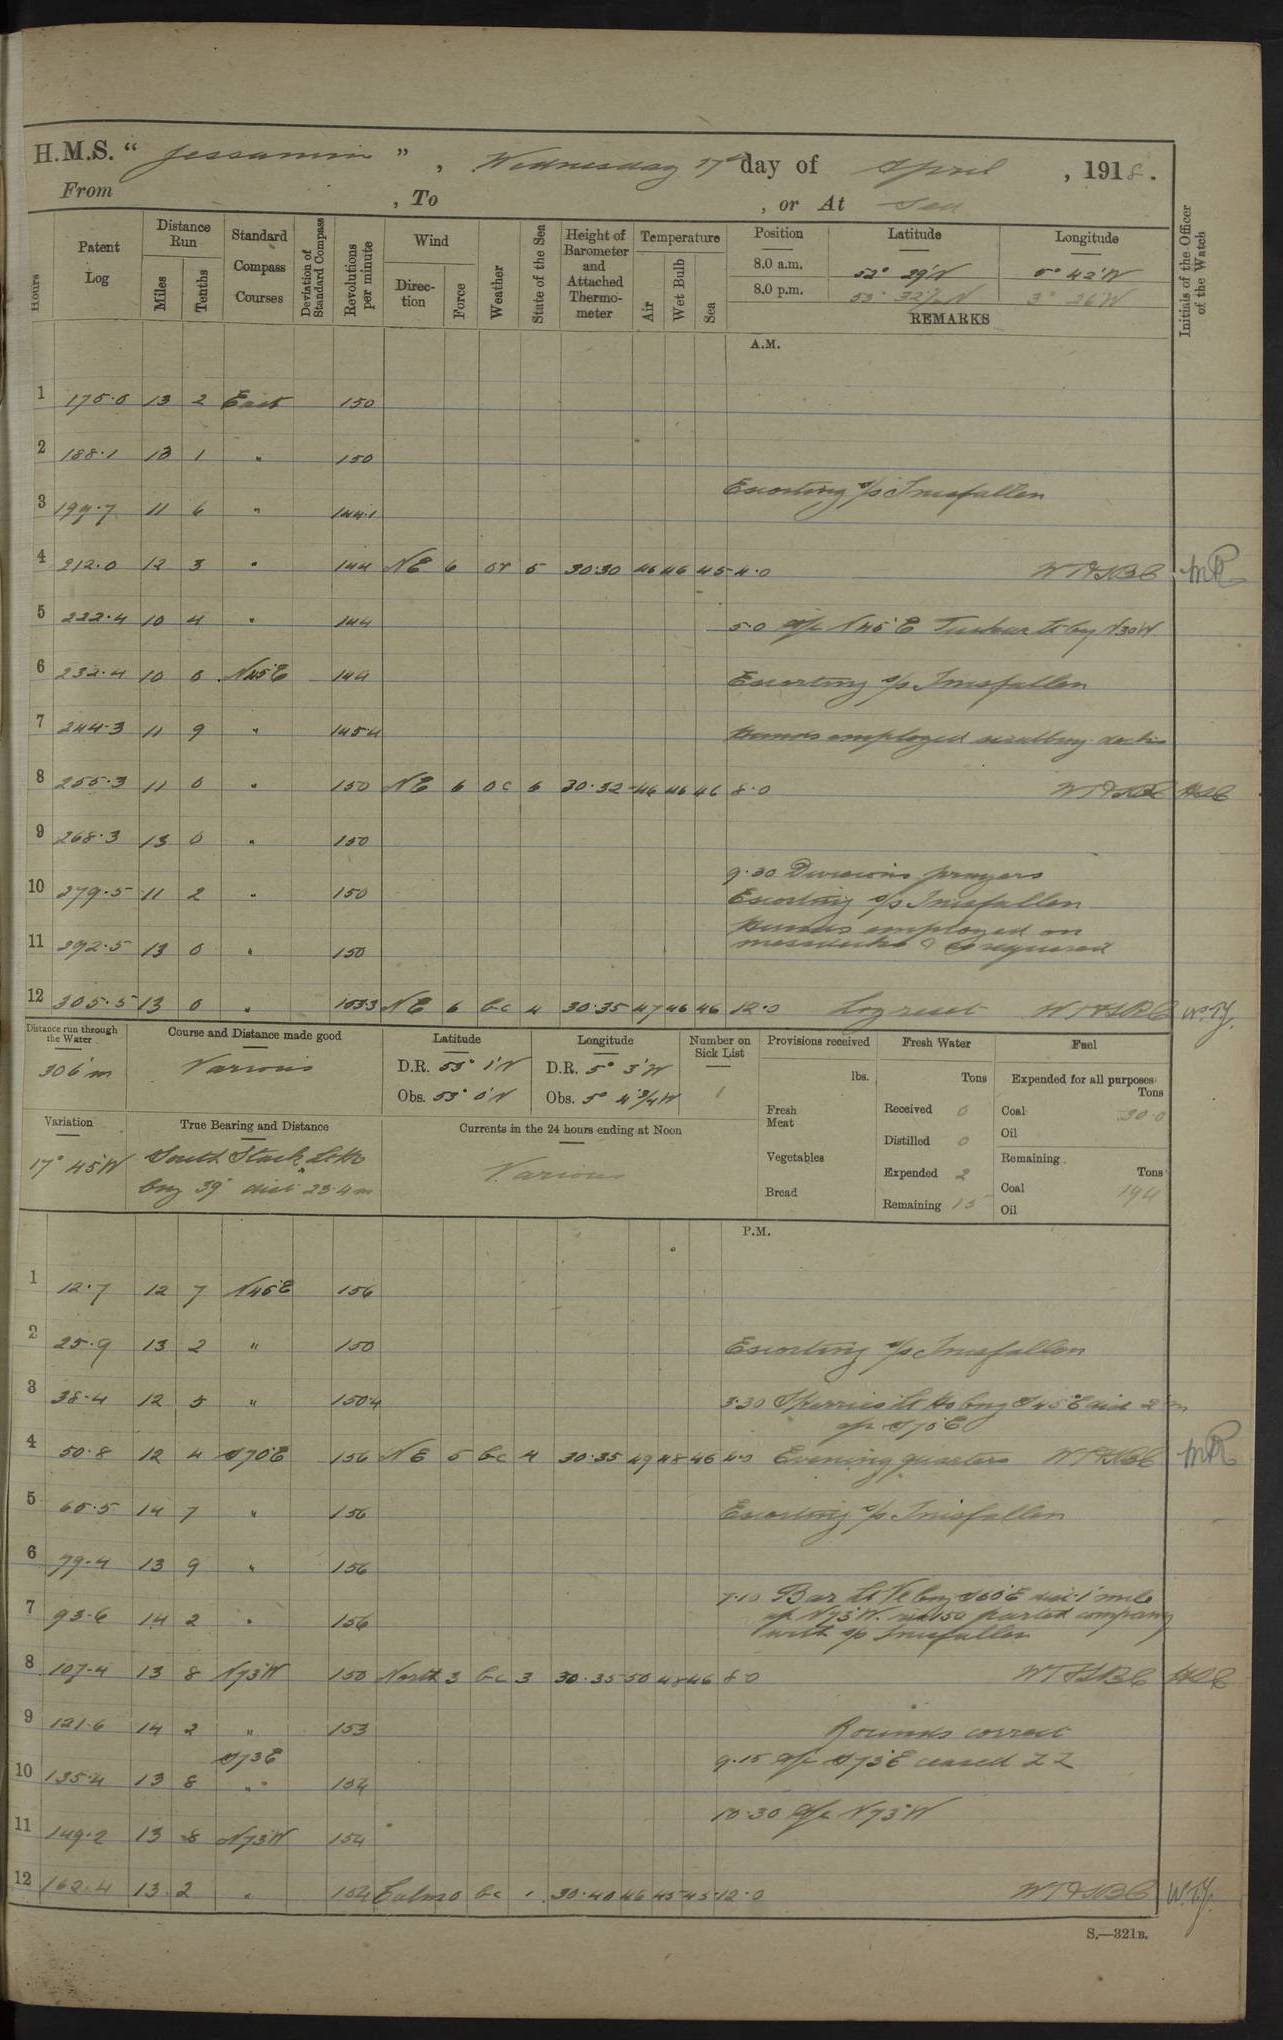 H.M.S. " Jessamine ", Wednesday 17th day of April, 1918.
From , To , or At Sea
Hours
Patent Log
Distance Run
Miles
Tenths
Standard Compass Courses
Deviation of Standard Compass
Revolutions per minute
Wind
Direction
Force
Weather
State of the Sea
Height of Barometer and Attached Thermometer
Temperature
Air
Wet Bulb
Sea
Position Latitude Longitude
8.0 a.m. 52° 29'N 5° 42'W
8.0 p.m. 53° 32½ N 3° 26'W
REMARKS
Initials of the Officer of the Watch
A.M.
1 175.0 13 2 East 150
2 188.1 13 1 " 150
Escorting s/s Innisfallen
3 199.7 11 6 " 144.1
4 212.0 12 3 " 144 NE 6 or 5 30.30 46 46 45 4.0 WTHSBC MR
5 222.4 10 4 " 144 5.0 a/c N45°E Tuskar Lt brg N30W
6 232.4 10 0 N45E 144 Escorting s/s Innisfallen
7 244.3 11 9 " 145.4 Hands employed scrubbing decks
8 255.3 11 0 " 150 NE 6 oc 6 30.32 46 46 46 8.0 WTHSBC
9 268.3 13 0 " 150
9.30 Divisions prayers
10 279.5 11 2 " 150 Escorting s/s Innisfallen
Hands employed on
11 292.5 13 0 " 150 messdecks & as required
12 305.5 13 0 " 153.3 NE 6 bc 4 30.35 47 46 46 12.0 Log reset WTHSBC W.T.Y.
Distance run through the Water
306 m
Course and Distance made good
Various
Latitude
D.R. 53° 1'N
Obs. 53° 0'N
Longitude
D.R. 5° 3'W
Obs. 5° 4¾'W
Number on Sick List
1
Provisions received
lbs.
Fresh Meat
Vegetables
Bread
Fresh Water
Tons
Received 0
Distilled 0
Expended 2
Remaining 15
Fuel
Expended for all purposes
Tons
Coal 30.0
Oil
Remaining
Tons
Coal 194
Oil
Variation
17° 45'W
True Bearing and Distance
South Stack Lt Ho
brg 39° dist 23.4 m
Currents in the 24 hours ending at Noon
Various
P.M.
1 12.7 12 7 N45E 156
2 25.9 13 2 " 150 Escorting s/s Innisfallen
3 38.4 12 5 " 150.4 3.30 Skerries Lt Ho brg S45°E dist 2 m
a/c S70E
4 50.8 12 4 S70E 156 NE 5 bc 4 30.35 49 48 46 4.0 Evening quarters WTHSBC MR
5 65.5 14 7 " 156 Escorting s/s Innisfallen
6 79.4 13 9 " 156
7.10 Bar Lt Ve brg S60°E dist 1 mile
7 93.6 14 2 " 156 a/c N73°W. parted company
with s/s Innisfallen
8 107.4 13 8 N73W 150 North 3 bc 3 30.35 50 48 46 8.0 WTHSBC
9 121.6 14 2 " 153 Rounds correct
S73E
9.15 a/c S73°E ceased ZZ
10 135.4 13 8 " 154
10.30 a/c N73°W
11 149.2 13 8 N73W 154
12 162.4 13 2 " 154 Calm 0 bc 30.40 46 45 45 12.0 WTHSBC W.T.Y.
S.—321B.